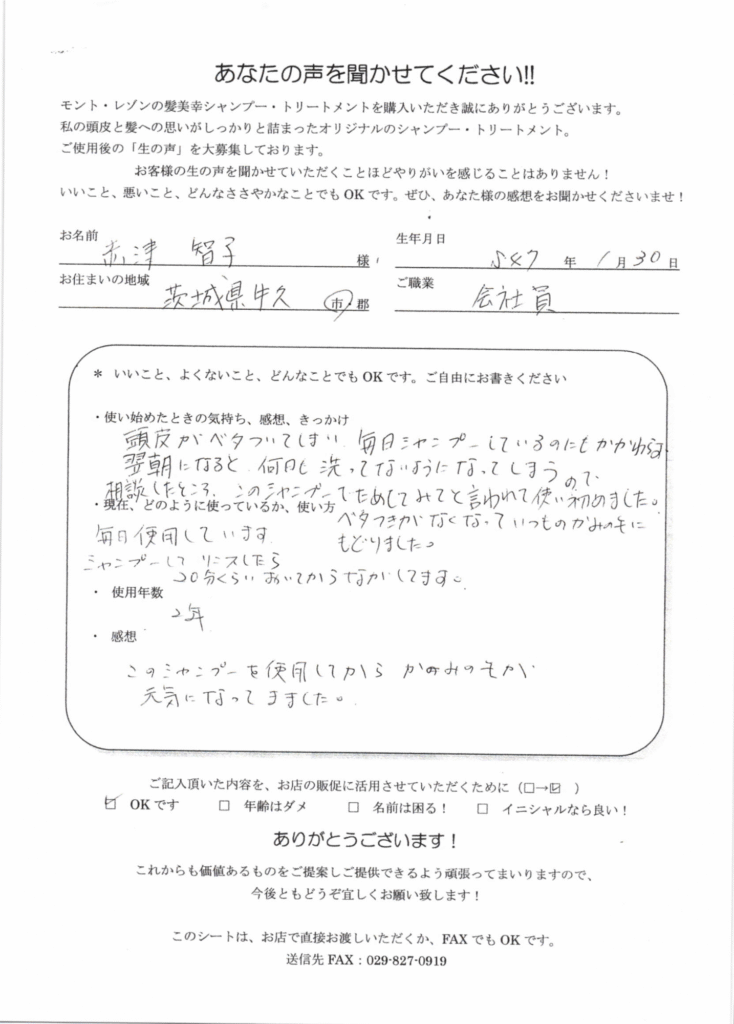 あなたの声を聞かせてください!!
モント・レゾンの髪美幸シャンプー・トリートメントを購入いただき誠にありがとうございます。
私の頭皮と髪への思いがしっかりと詰まったオリジナルのシャンプー・トリートメント。
ご使用後の「生の声」を大募集しております。
お客様の生の声を聞かせていただくことほどやりがいを感じることはありません！
いいこと、悪いこと、どんなささやかなことでもOKです。ぜひ、あなた様の感想をお聞かせくださいませ！
お名前 米津 智子 様
生年月日 S47 年 1月30日
お住まいの地域 茨城県牛久 市・郡
ご職業 会社員
＊ いいこと、よくないこと、どんなことでもOKです。ご自由にお書きください
・使い始めたときの気持ち、感想、きっかけ
頭皮がベタついてしまい 毎日シャンプーしているのにもかかわらず
翌朝になると 何日も 洗ってないようになってしまうので、
相談したところ、このシャンプーでためしてみてと言われて使い初めました。
ベタつきがなくなっていつものかみの毛に
もどりました。
・現在、どのように使っているか、使い方
毎日使用しています
シャンプーして リンスしたら
20分くらい おいてからながしてます。
・ 使用年数
2年
・ 感想
このシャンプーを使用してから かみのそが
元気になってきました。
ご記入頂いた内容を、お店の販促に活用させていただくために（□→☑ ）
☑ OKです □ 年齢はダメ □ 名前は困る！ □ イニシャルなら良い！
ありがとうございます！
これからも価値あるものをご提案しご提供できるよう頑張ってまいりますので、
今後ともどうぞ宜しくお願い致します！
このシートは、お店で直接お渡しいただくか、FAXでもOKです。
送信先FAX：029-827-0919